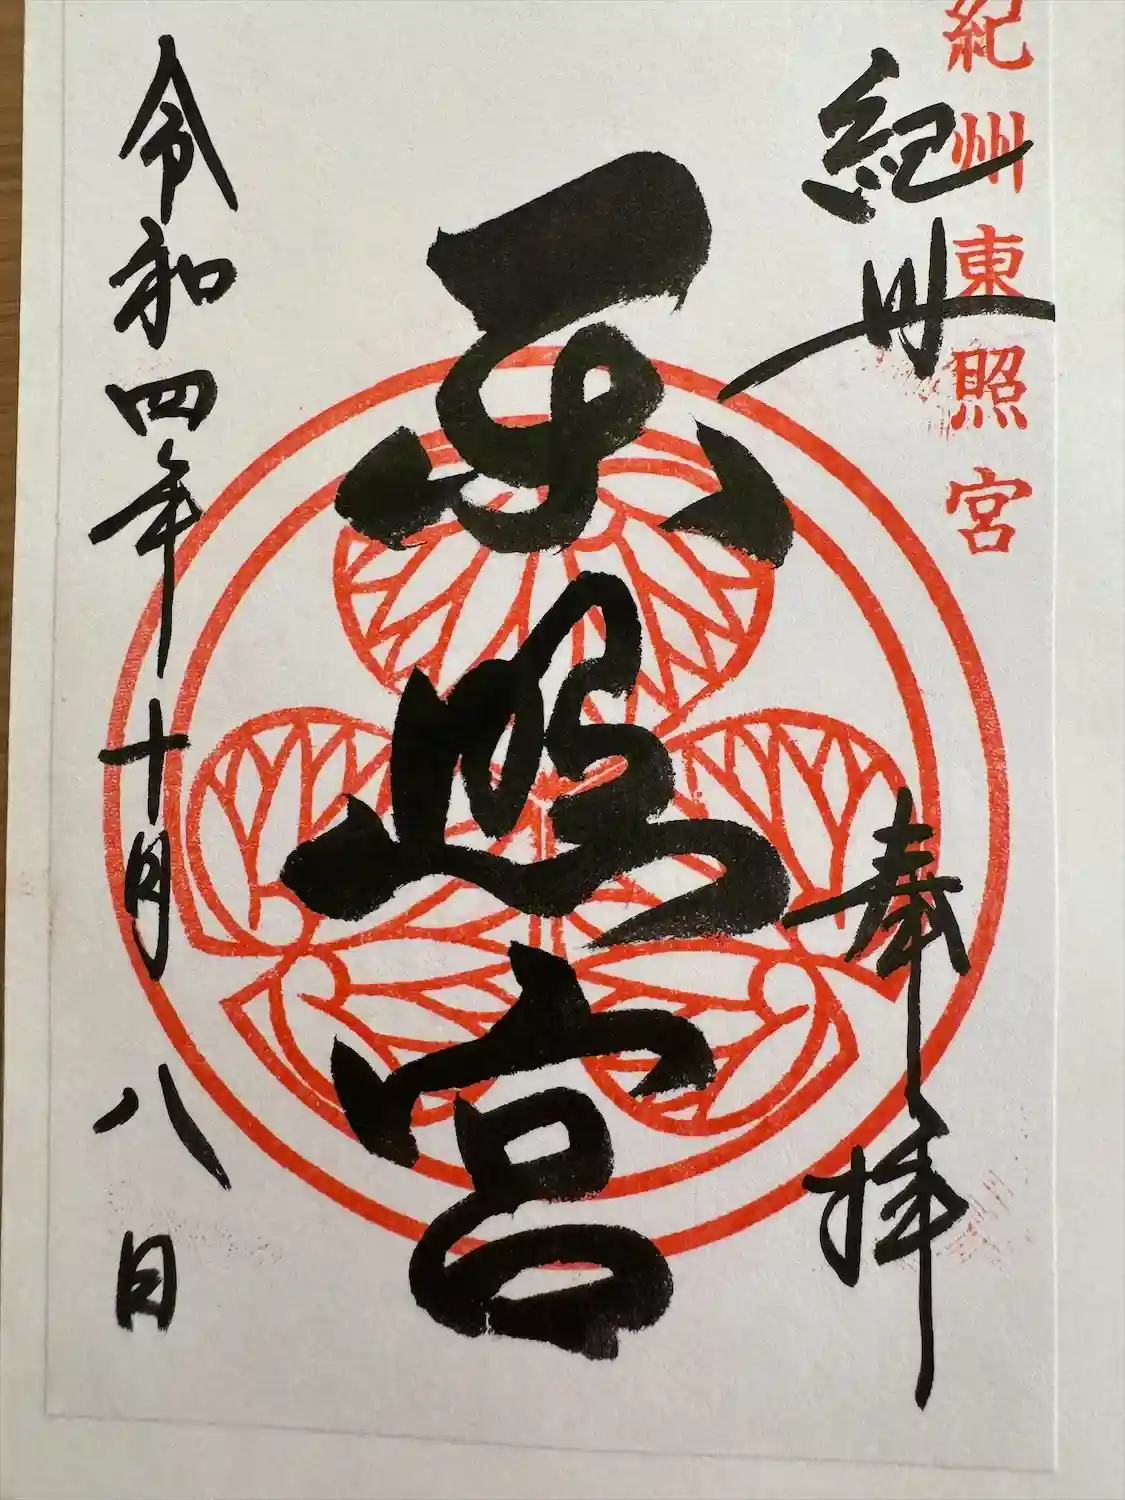 紀州東照宮
紀州
奉拝
东照宮
令和四年十月八日